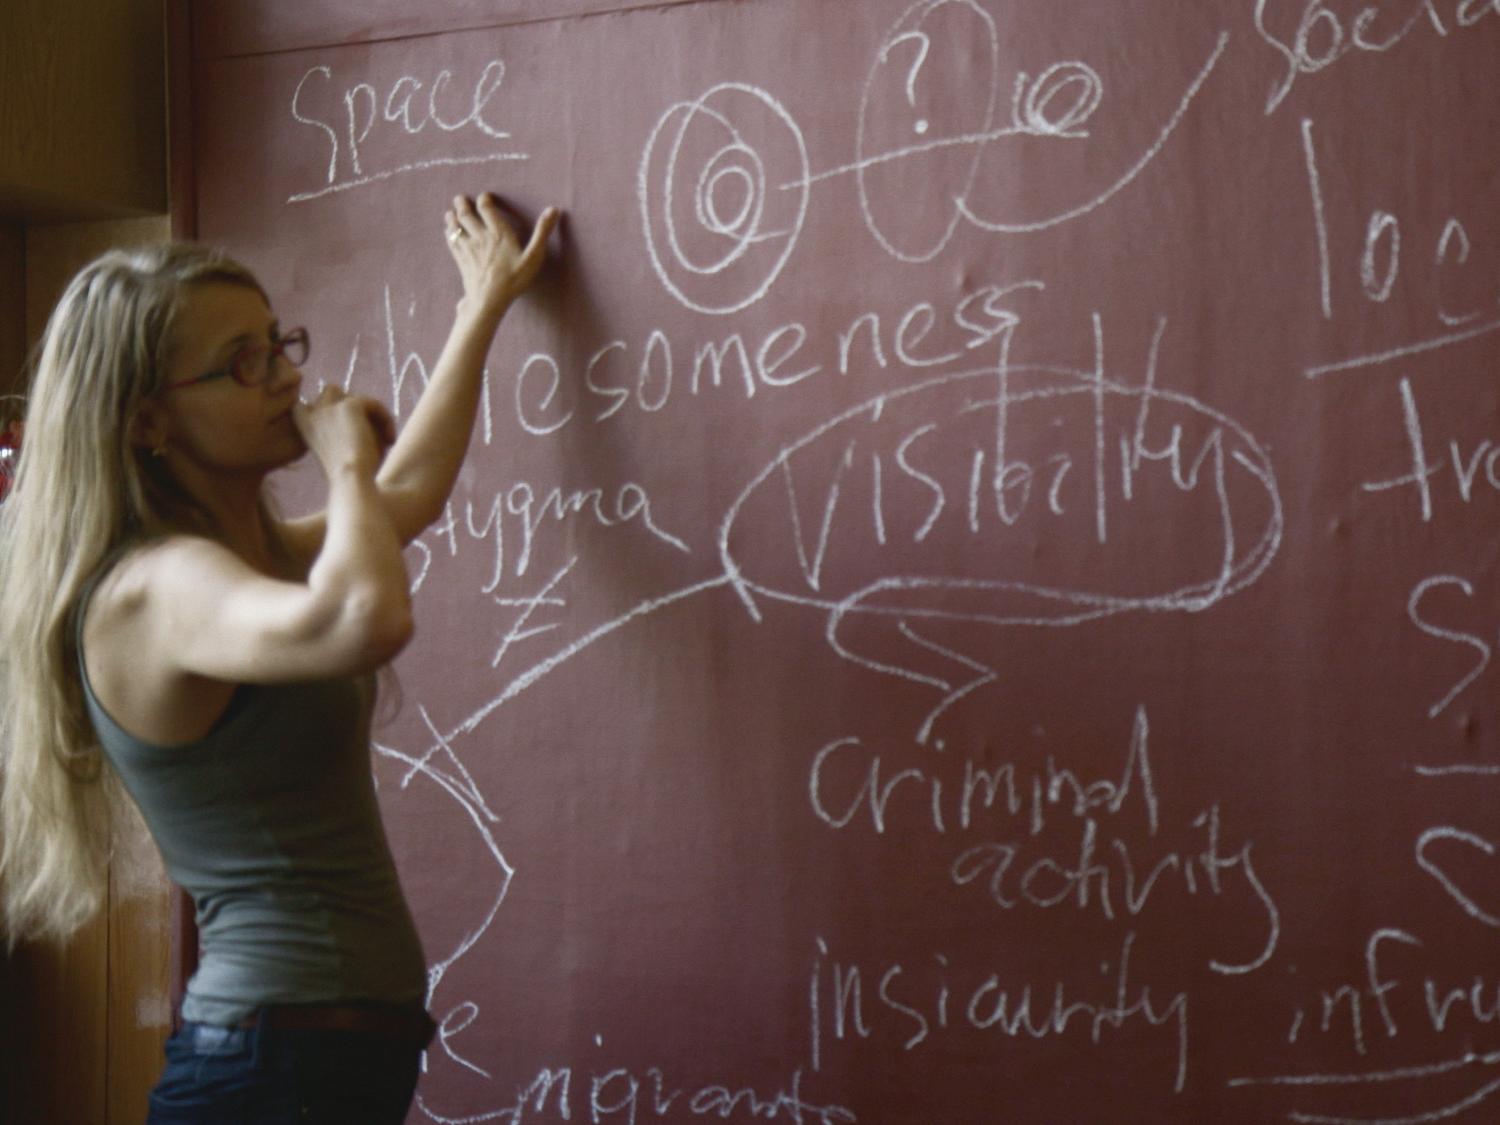 Space
?
Socia
loc
wholesomeness
stygma
≠
visibility
tra
criminal
activity
insicurity
infru
migrants